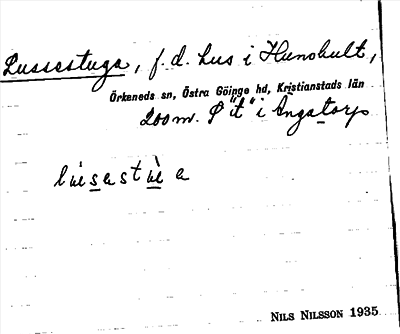 Lussestuga, f. d. hus i Hunshult,
Örkeneds sn, Östra Göinge hd, Kristianstads län
200 m. Ö "t" i Ångatorp
lùsastùa
NILS NILSSON 1935